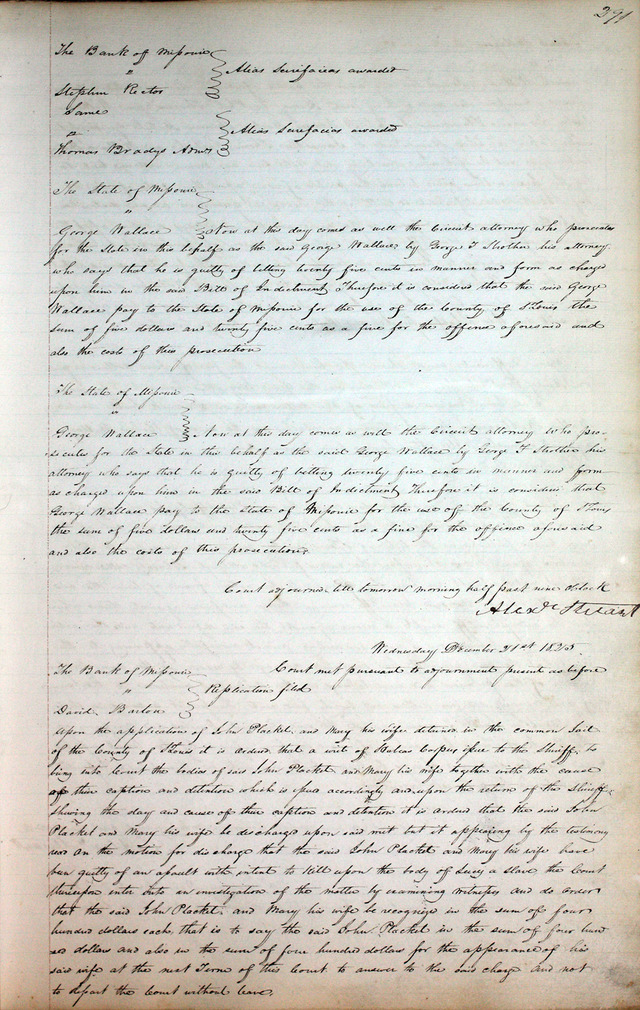 291
The Bank off Missouri
"
Alias Scirefacias awarded
Stephen Rector
Same
"
Alias Scirefacias awarded
Thomas Bradys Admrs
The State of Missouri
"
George Wallace Now at this day comes as well the Circuit attorney who prosecutes
for the State in this behalf as the said George Wallace by George F Strother his Attorney
who says that he is guilty of betting twenty five cents in manner and form as charged
upon him in the said Bill of Indictment Therefore it is considered that the said George
Wallace pay to the State of Missouri for the use of the County of St Louis the
sum of five dollars and twenty five cents as a fine for the offense aforesaid and
also the costs of this prosecution
The State of Missouri
"
George Wallace Now at this day comes as well the Circuit attorney who pro-
secutes for the State in this behalf as the said George Wallace by George F Strother his
attorney who says that he is guilty of betting twenty five cents in manner and form
as charged upon him in the said Bill of Indictment Therefore it is considered that
George Wallace pay to the State of Missouri for the use of the County of St Louis
the sum of five dollars and twenty five cents as a fine for the offence aforesaid
and also the costs of this prosecution
Court adjourned till tomorrow morning half past nine oClock
Alexr Stuart
Wednesday December 21st 1825
The Bank of Missouri Court met pursuant to adjournment present as before
"
Replication filed
David Barton
Upon the application of John Placket and Mary his wife detained in the common Jail
of the County of St Louis it is ordered that a writ of Habeas Corpus issue to the Sheriff to
bring into Court the bodies of said John Placket and Mary his wife together with the cause
of their caption and detention which is issued accordingly and upon the return of the Sheriff
shewing the day and cause of their caption and detention it is ordered that the said John
Placket and Mary his wife be discharged upon said writ but it appearing by the testimony
used on the motion for discharge that the said John Placket and Mary his wife have
been guilty of an assault with intent to Kill upon the body of Lucy a slave the Court
thereupon enter into an investigation of the matter by examining witnesses and do order
that the said John Placket and Mary his wife be recognized in the sum of four
hundred dollars each that is to say the said John Placket in the sum of four hund
red dollars and also in the sum of four hundred dollars for the appearance of his
said wife at the next Term of this Court to answer to the said charge and not
to depart the Court without leave.